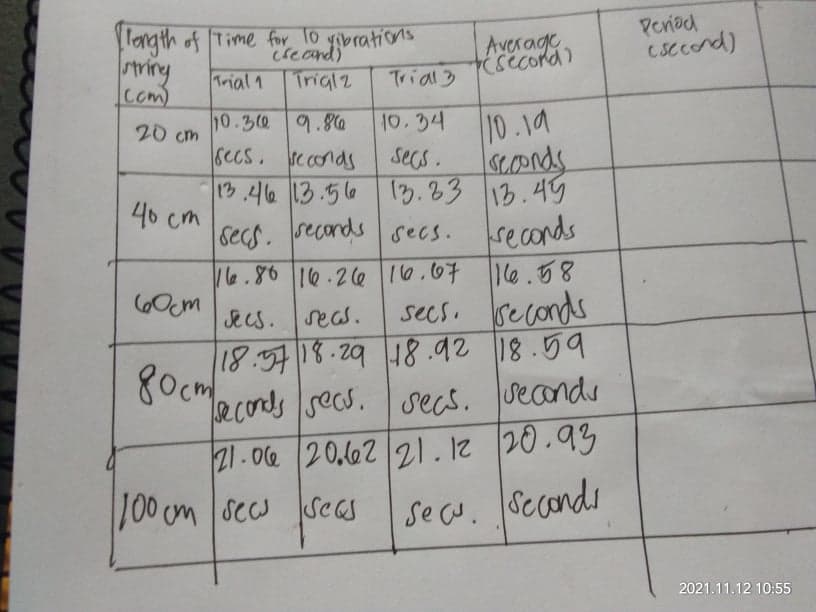 length of
string
(cm)
Time for 10 vibrations
(second)
Average
(second)
Period
(second)
Trial 1 Trial 2 Trial 3
20 cm
10.36 9.86 10.34 10.19
secs. seconds secs. seconds
40 cm
13.46 13.56 13.33 13.45
secs. seconds secs. seconds
60cm
16.80 16.26 16.67 16.58
secs. secs. secs. seconds
80cm
18.57 18.29 18.92 18.59
seconds secs. secs. seconds
100 cm
21.06 20.62 21.12 20.93
secs secs secs. seconds
2021.11.12 10:55